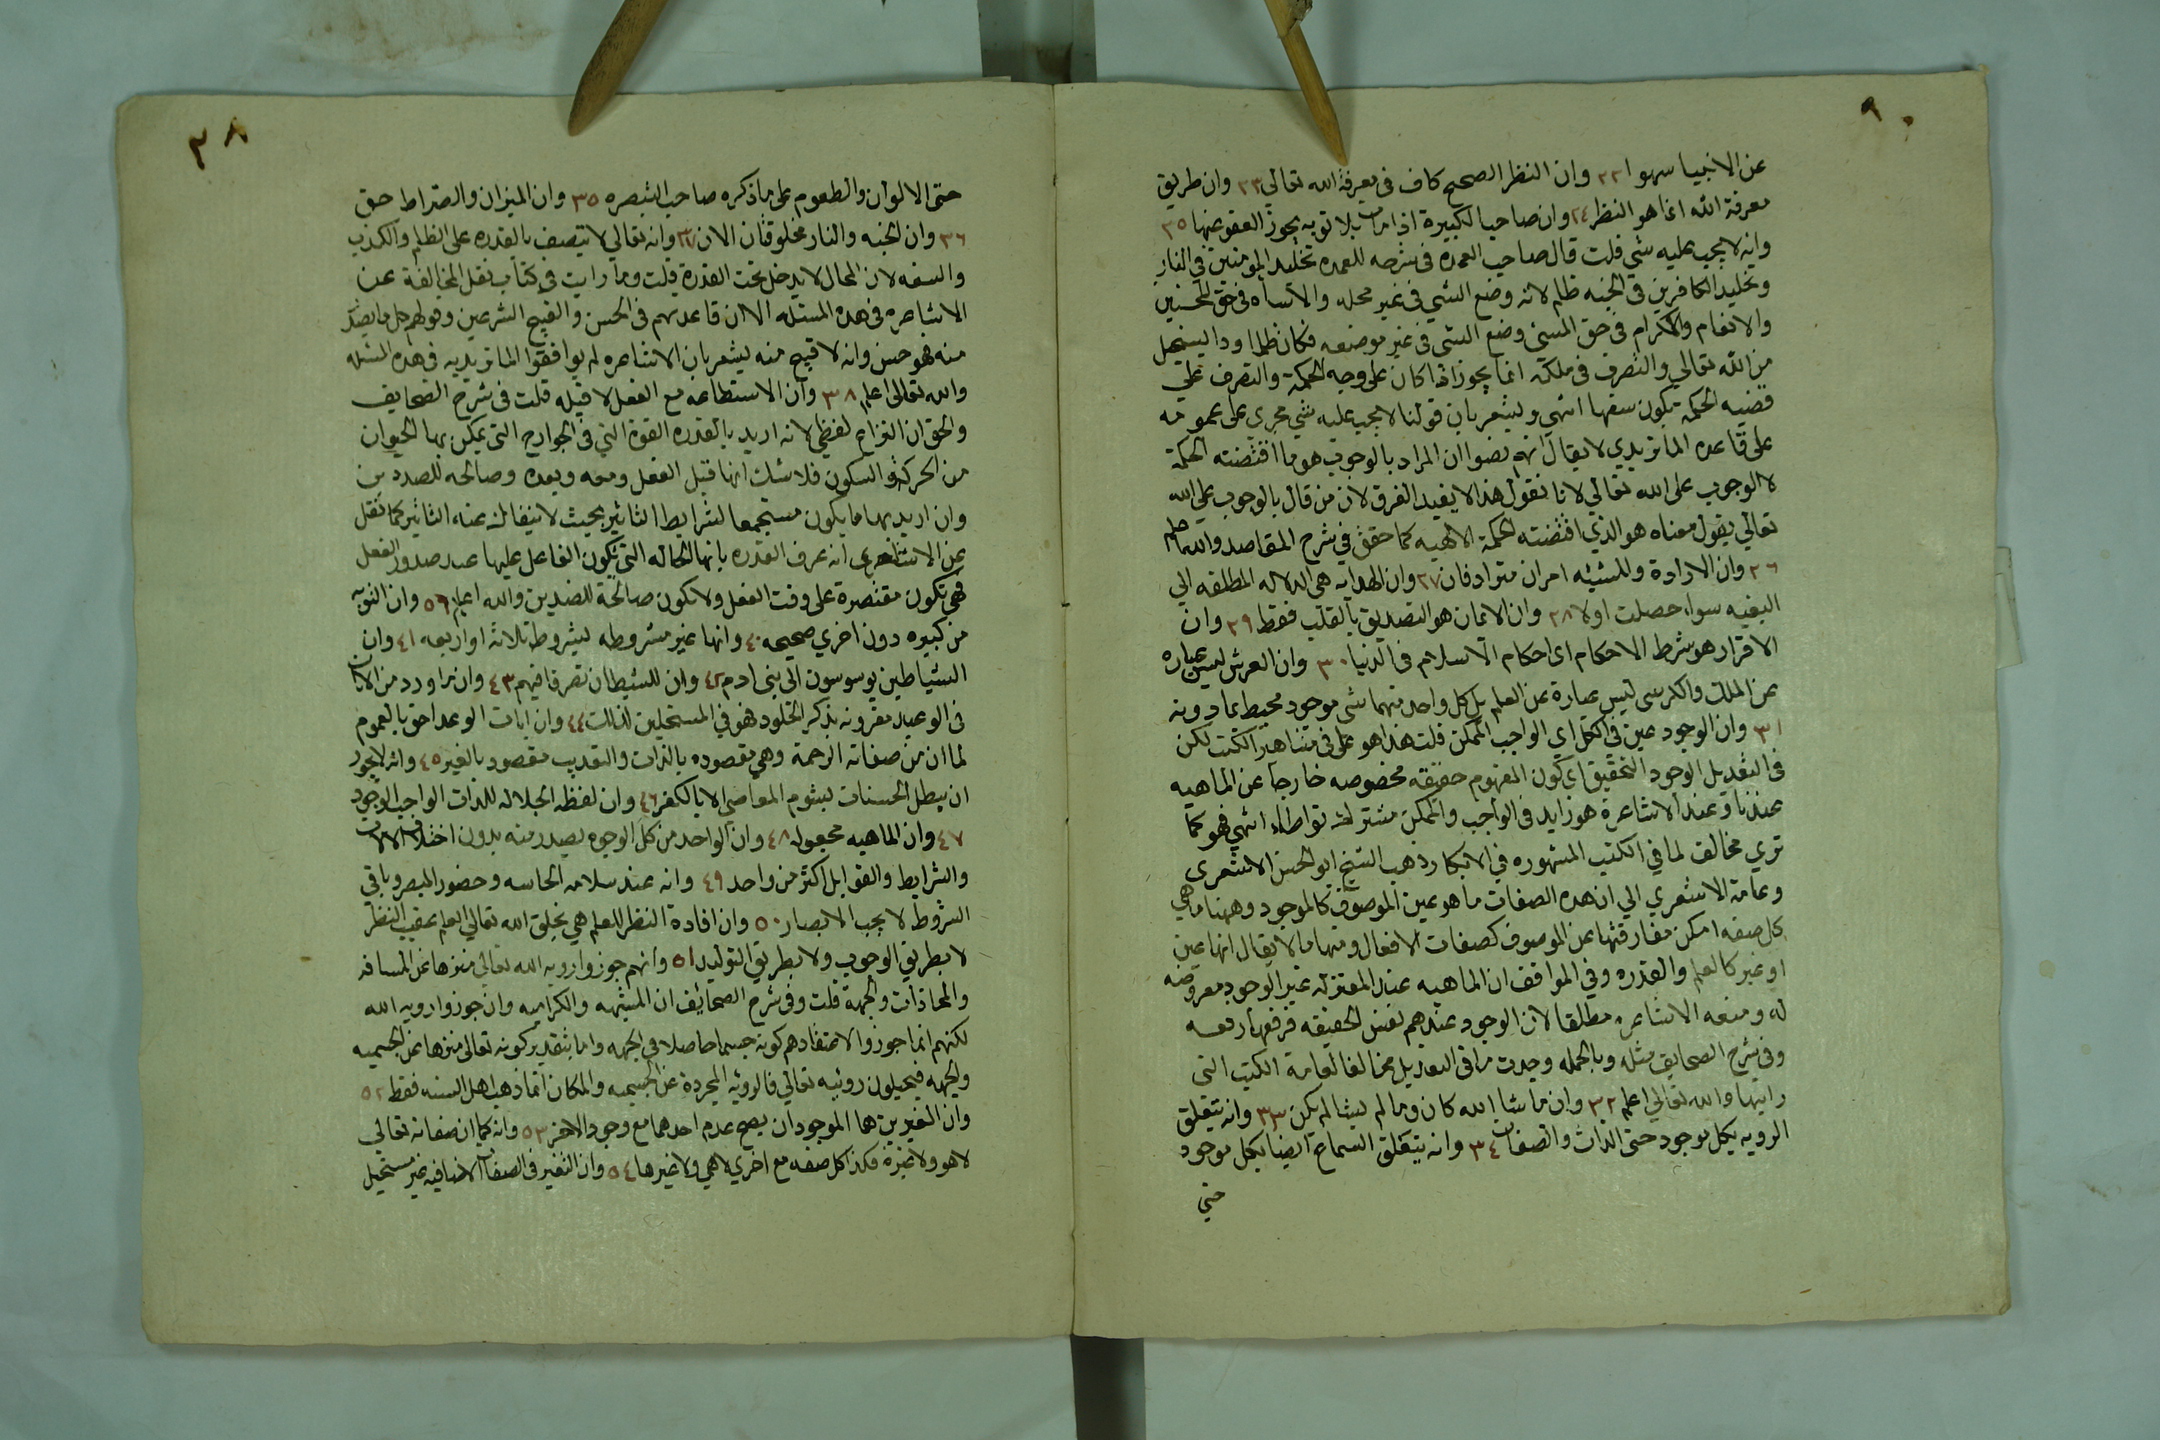 ٩٠
عن الانبيا سهوا ٢٢ وان النظر الصحيح كاف في معرفة الله تعالي ٢٣ وان طريق
معرفة الله انما هو النظر ٢٤ وان صاحب الكبيرة اذا مات بلا توبه يجوز العفو عنها ٢٥
وانه لا يجب عليه شي قلت قال صاحب العمدة في شرحه للعمده تخليد المومنين في النار
وتخليد الكافرين في الجنه ظلم لانه وضع الشي في غير محله والاساه في حق المحسنين
والانعام والاكرام في حق المسي وضع الشي في غير موضعه فكان ظلما وذا يستحيل
من الله تعالي والتصرف في ملكه انما يجوز اذا كان علي وجه الحكمة والتصرف علي
قضيه الحكمه يكون سفها انتهي ويشعر بان قولنا لا يجب عليه شي مجري علي عمومه
علي قاعده الماتريدي لا يقال انهم نصوا ان المراد بالوجوب هو ما اقتضته الحكمة
لا الوجوب علي الله تعالي لانا نقول هذا لا يفيد الفرق لان من قال بالوجوب علي الله
تعالي يقول معناه هو الذي اقتضته الحكمة الالهيه كما حقق في شرح المقاصد والله اعلم
٢٦ وان الارادة والمشيئه امران مترادفان ٢٧ وان الهدايه هي الدلاله المطلقه الي
البغيه سواء حصلت اولا ٢٨ وان الايمان هو التصديق بالقلب فقط ٢٩ وان
الاقرار هو شرط الاحكام اي احكام الاسلام في الدنيا ٣٠ وان العرش ليس عباره
عن الملك والكرسي ليس عبارة عن العلم بل كل واحد منهما شي موجود محيط بما دونه
٣١ وان الوجود عين في الكل اي الواجب الممكن قلت هذا هو علي في مشاهير الكتب لكن
في التعديل الوجود التحقيق اي كون المفهوم حقيقه مخصوصه خارجا عن الماهيه
عندنا وعند الاشاعرة هو زايد في الواجب والممكن مشترك تواطاء انتهي فهو كما
تري مخالف لما في الكتب المشهوره في الابكار ذهب الشيخ ابو الحسن الاشعري
وعامة الاشعري الي ان هذه الصفات ما هو عين الموصوف كالوجود وههنا ما هي
كل صفه امكن مفارقتها عن الموصوف كصفات الافعال ومنها ما لا يقال انها عين
او غير كالعلم والقدره وفي المواقف ان الماهيه عند المعتزله غير الوجود معروضه
له ومنعه الاشاعره مطلقا لان الوجود عندهم نفس الحقيقه فرفعها رفعه
وفي شرح الصحايف مثله وبالجمله وجدت ما في التعديل مخالفا لعامة الكتب التي
رايتها والله تعالي اعلم ٣٢ وان ما شا الله كان وما لم يشا لم يكن ٣٣ وانه يتعلق
الرويه بكل موجود حتي الذات والصفات ٣٤ وانه يتعلق السماع ايضا بكل موجود
حتي
٣٨
حتي الالوان والطعوم علي ما ذكره صاحب التبصره ٣٥ وان الميزان والصراط حق
٣٦ وان الجنه والنار مخلوقتان الان ٣٧ وانه تعالي لا يتصف بالقدره علي الظلم والكذب
والسفه لان المحال لا يدخل تحت القدرة قلت وما رايت في كتاب نقل المخالفة عن
الاشاعره في هذه المسئله الا ان قاعدتهم في الحسن والقبح الشرعيين وقولهم كل ما يصدر
منه فهو حسن وانه لا قبيح منه يشعر بان الاشاعره لم يوافقوا الماتريديه في هذه المسئله
والله تعالي اعلم ٣٨ وان الاستطاعه مع الفعل لا قبله قلت في شرح الصحايف
والحق ان النزاع لفظي لانه اريد بالقدره القوة التي في الجوارح التي يمكن بها الحيوان
من الحركة والسكون فلا شك انها قبل الفعل ومعه وبعده وصالحه للضدين
وان اريد بها ما يكون مستجمعا لشرايط التاثير بحيث لا ينفك عنه التاثير كما نقل
عن الاشعري انه عرف القدره بانها الحاله التي يكون الفاعل عليها عند صدور الفعل
فهي تكون مقتصرة علي وقت الفعل ولا تكون صالحة للضدين والله اعلم ٥٩ وان التوبه
من كبيره دون اخري صحيحه ٤٠ وانها غير مشروطه بشروط ثلاثة او اربعه ٤١ وان
الشياطين يوسوسون الي بني ادم ٤٢ وان للشيطان تصرفا فيهم ٤٣ وان ما ورد من الايات
في الوعيد مقرونه بذكر الخلود فهو في المستحلين لذلك ٤٤ وان ايات الوعد احق بالعموم
لما ان من صفاته الرحمة وهي مقصوده بالذات والتعذيب مقصود بالغير ٤٥ وانه لا يجوز
ان يبطل الحسنات بشوم المعاصي الا بالكفر ٤٦ وان لفظه الجلاله للذات الواجب الوجود
٤٧ وان الماهيه مجعوله ٤٨ وان الواحد من كل الوجوه يصدر منه بدون اختلاف الالات
والشرايط والقوابل اكثر من واحد ٤٩ وانه عند سلامه الحاسه وحضور المبصر وباقي
الشروط لا يجب الابصار ٥٠ وان افادة النظر للعلم هي بخلق الله تعالي العلم عقيب النظر
لا بطريق الوجوب ولا بطريق التوليد ٥١ وانهم جوزوا رويه الله تعالي منزها عن المسافه
والمحاذات والجهة قلت وفي شرح الصحايف ان المشبهه والكراميه وان جوزوا رويه الله
لكنهم انما جوزوا لاعتقادهم كونه جسما حاصلا في الجهه واما بتقدير كونه تعالي منزها عن الجسميه
والجهه فيحيلون رويته تعالي فالرويه المجردة عن الجسميه والمكان انما ذهب اهل السنه فقط ٥٢
وان الغيرين هما الموجودان يصح عدم احدهما مع وجود الاخر ٥٣ وانه كما ان صفاته تعالي
لا هو ولا غيره فكذا كل صفه مع اخري لا هي ولا غيرها ٥٤ وان التغير في الصفات الاضافيه غير مستحيل